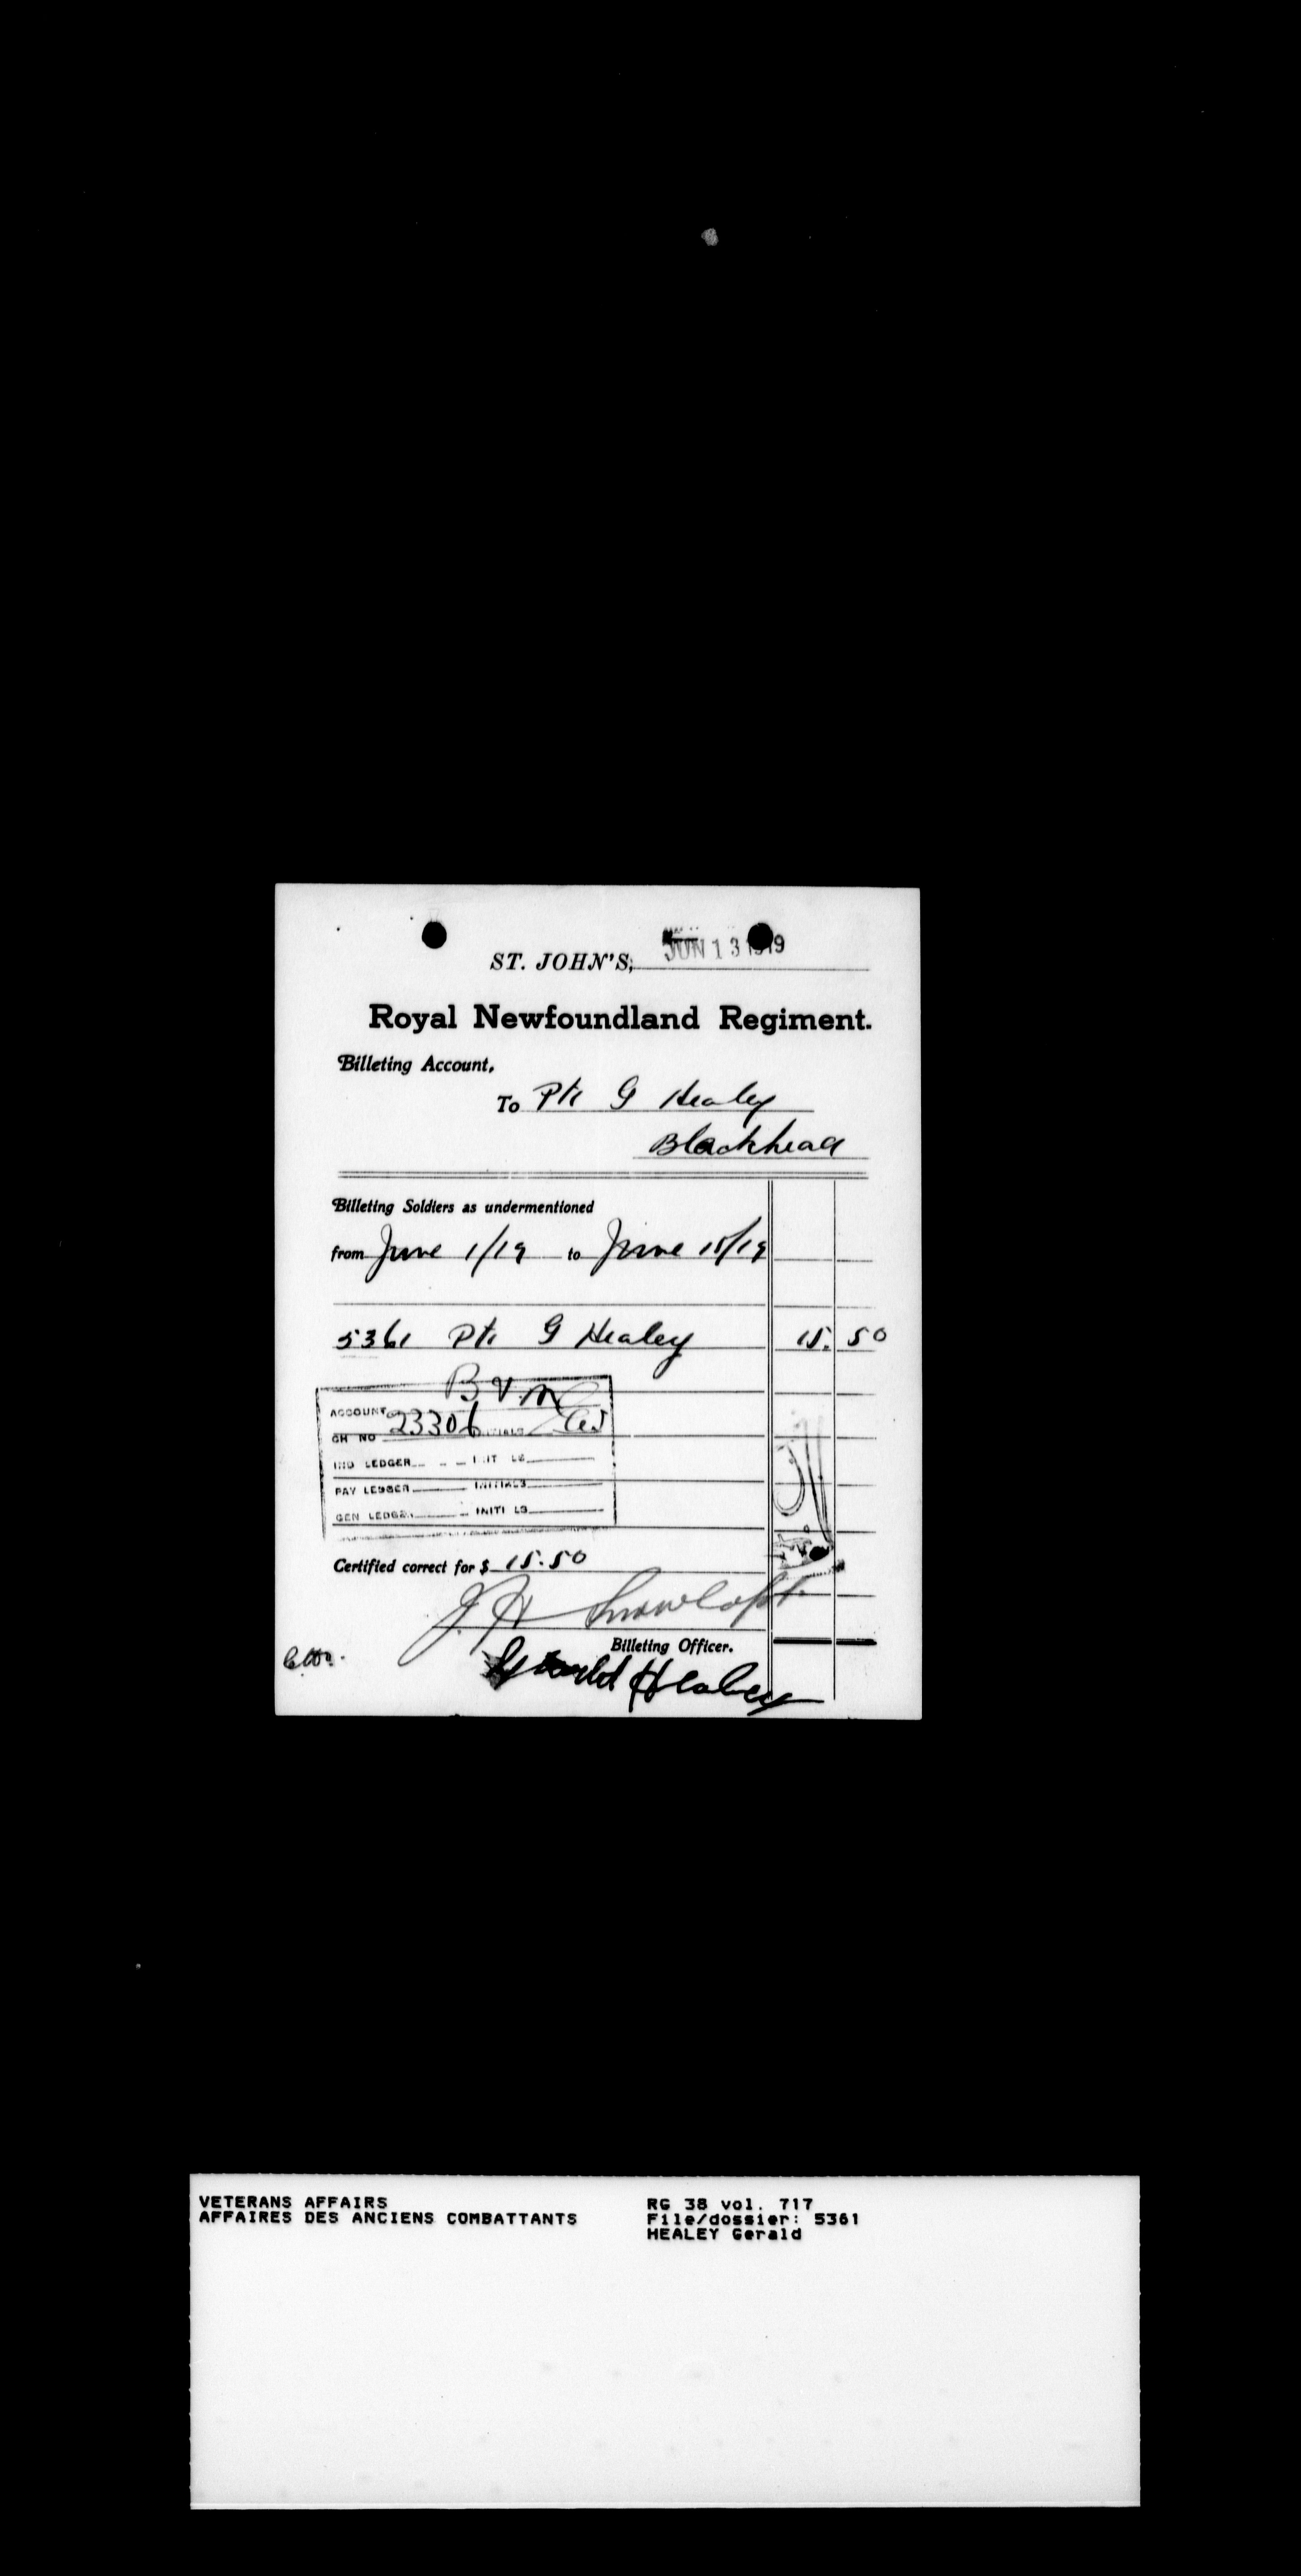 ST. JOHN'S, JUN 13 1919
Royal Newfoundland Regiment.
Billeting Account,
To Pte G Healey
Blackhead
Billeting Soldiers as undermentioned
from June 1/19 to June 15/19
5361 Pte G Healey 15. 50
ACCOUNT
CH NO 23306 INITIALS
IND LEDGER INITLS
PAY LEDGER INITIALS
GEN LEDGER INITLS
Certified correct for $ 15.50
J. H
Billeting Officer.
Gerald Healey
VETERANS AFFAIRS
AFFAIRES DES ANCIENS COMBATTANTS
RG 38 vol. 717
File/dossier: 5361
HEALEY Gerald